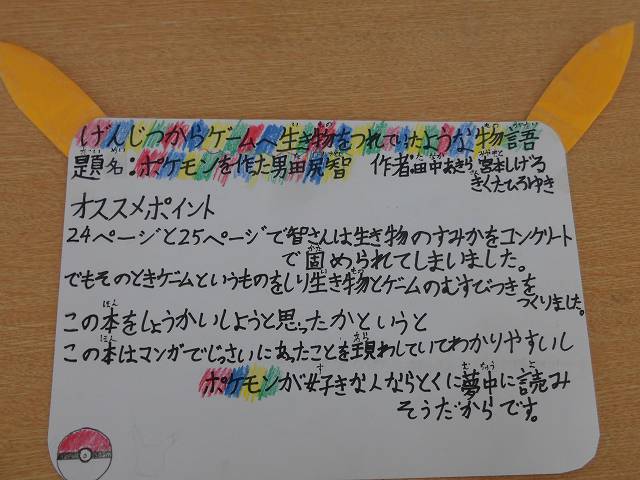 げんじつからゲームへ生き物をつれていたような物語
題名：ポケモンを作った男田尻智 作者田中あきら 宮本しげる
きくたひろゆき
オススメポイント
24ページと25ページで智さんは生き物のすみかをコンクリート
で固められてしまいました。
でもそのときゲームというものをしり生き物とゲームのむすびつきを
つくりました。
この本をしょうかいしようと思ったかというと
この本はマンガでじっさいにあったことを現わしていてわかりやすいし
ポケモンが好きな人ならとくに夢中に読み
そうだからです。